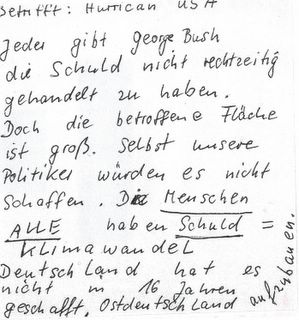 Betrifft: Hurrican USA
Jeder gibt George Bush
die Schuld nicht rechtzeitig
gehandelt zu haben.
Doch die betroffene Fläche
ist groß. Selbst unsere
Politiker würden es nicht
schaffen. Die Menschen
ALLE haben Schuld =
Klimawandel
Deutschland hat es
nicht in 16 Jahren
geschafft, Ostdeutschland aufzubauen.